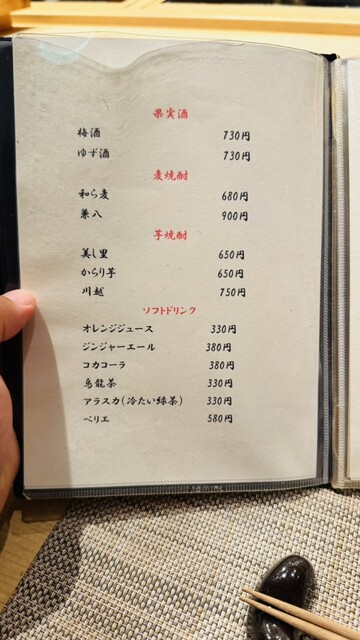 果実酒
梅酒 730円
ゆず酒 730円
麦焼酎
和ら麦 680円
兼八 900円
芋焼酎
美し里 650円
からり芋 650円
川越 750円
ソフトドリンク
オレンジジュース 330円
ジンジャーエール 380円
コカコーラ 380円
烏龍茶 330円
アラスカ(冷たい緑茶) 330円
ペリエ 580円